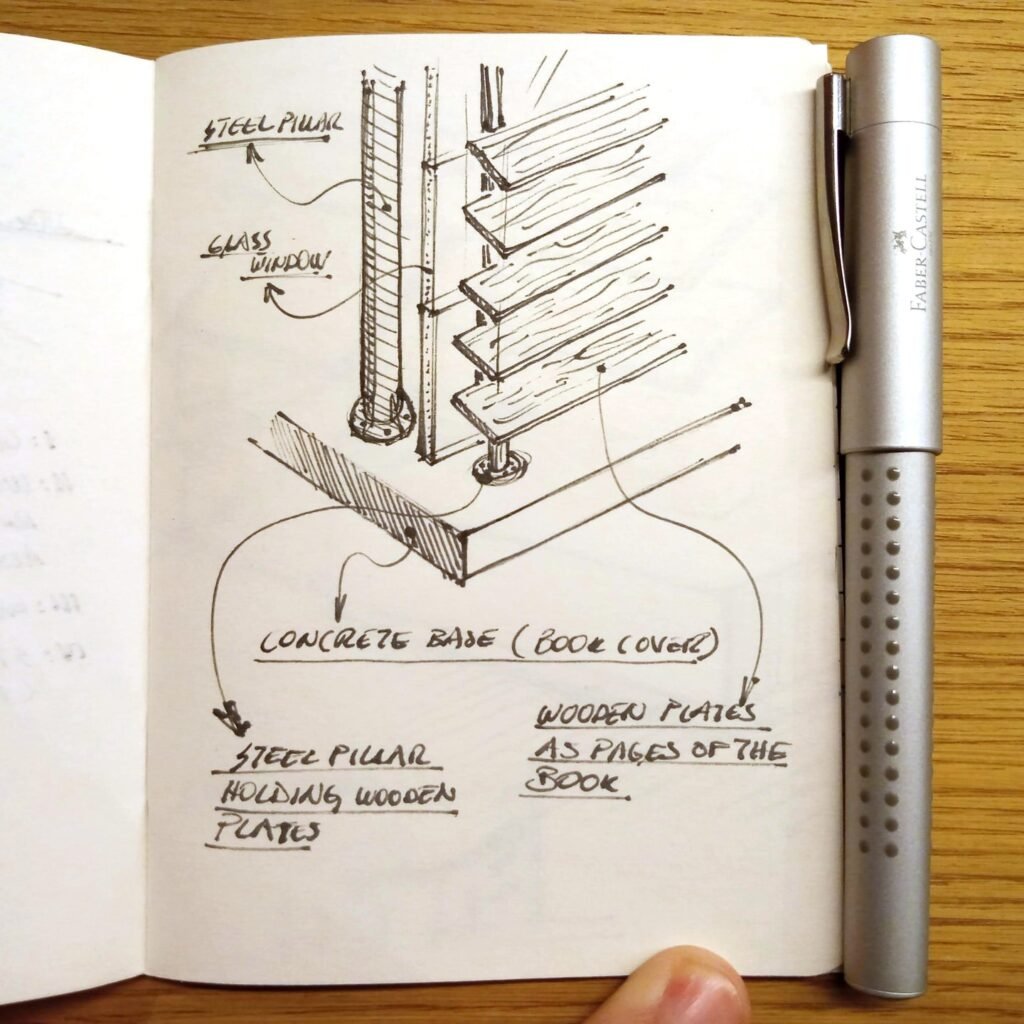 STEEL PILLAR
GLASS
WINDOW
CONCRETE BASE (BOOK COVER)
STEEL PILLAR
HOLDING WOODEN
PLATES
WOODEN PLATES
AS PAGES OF THE
BOOK
FABER-CASTELL